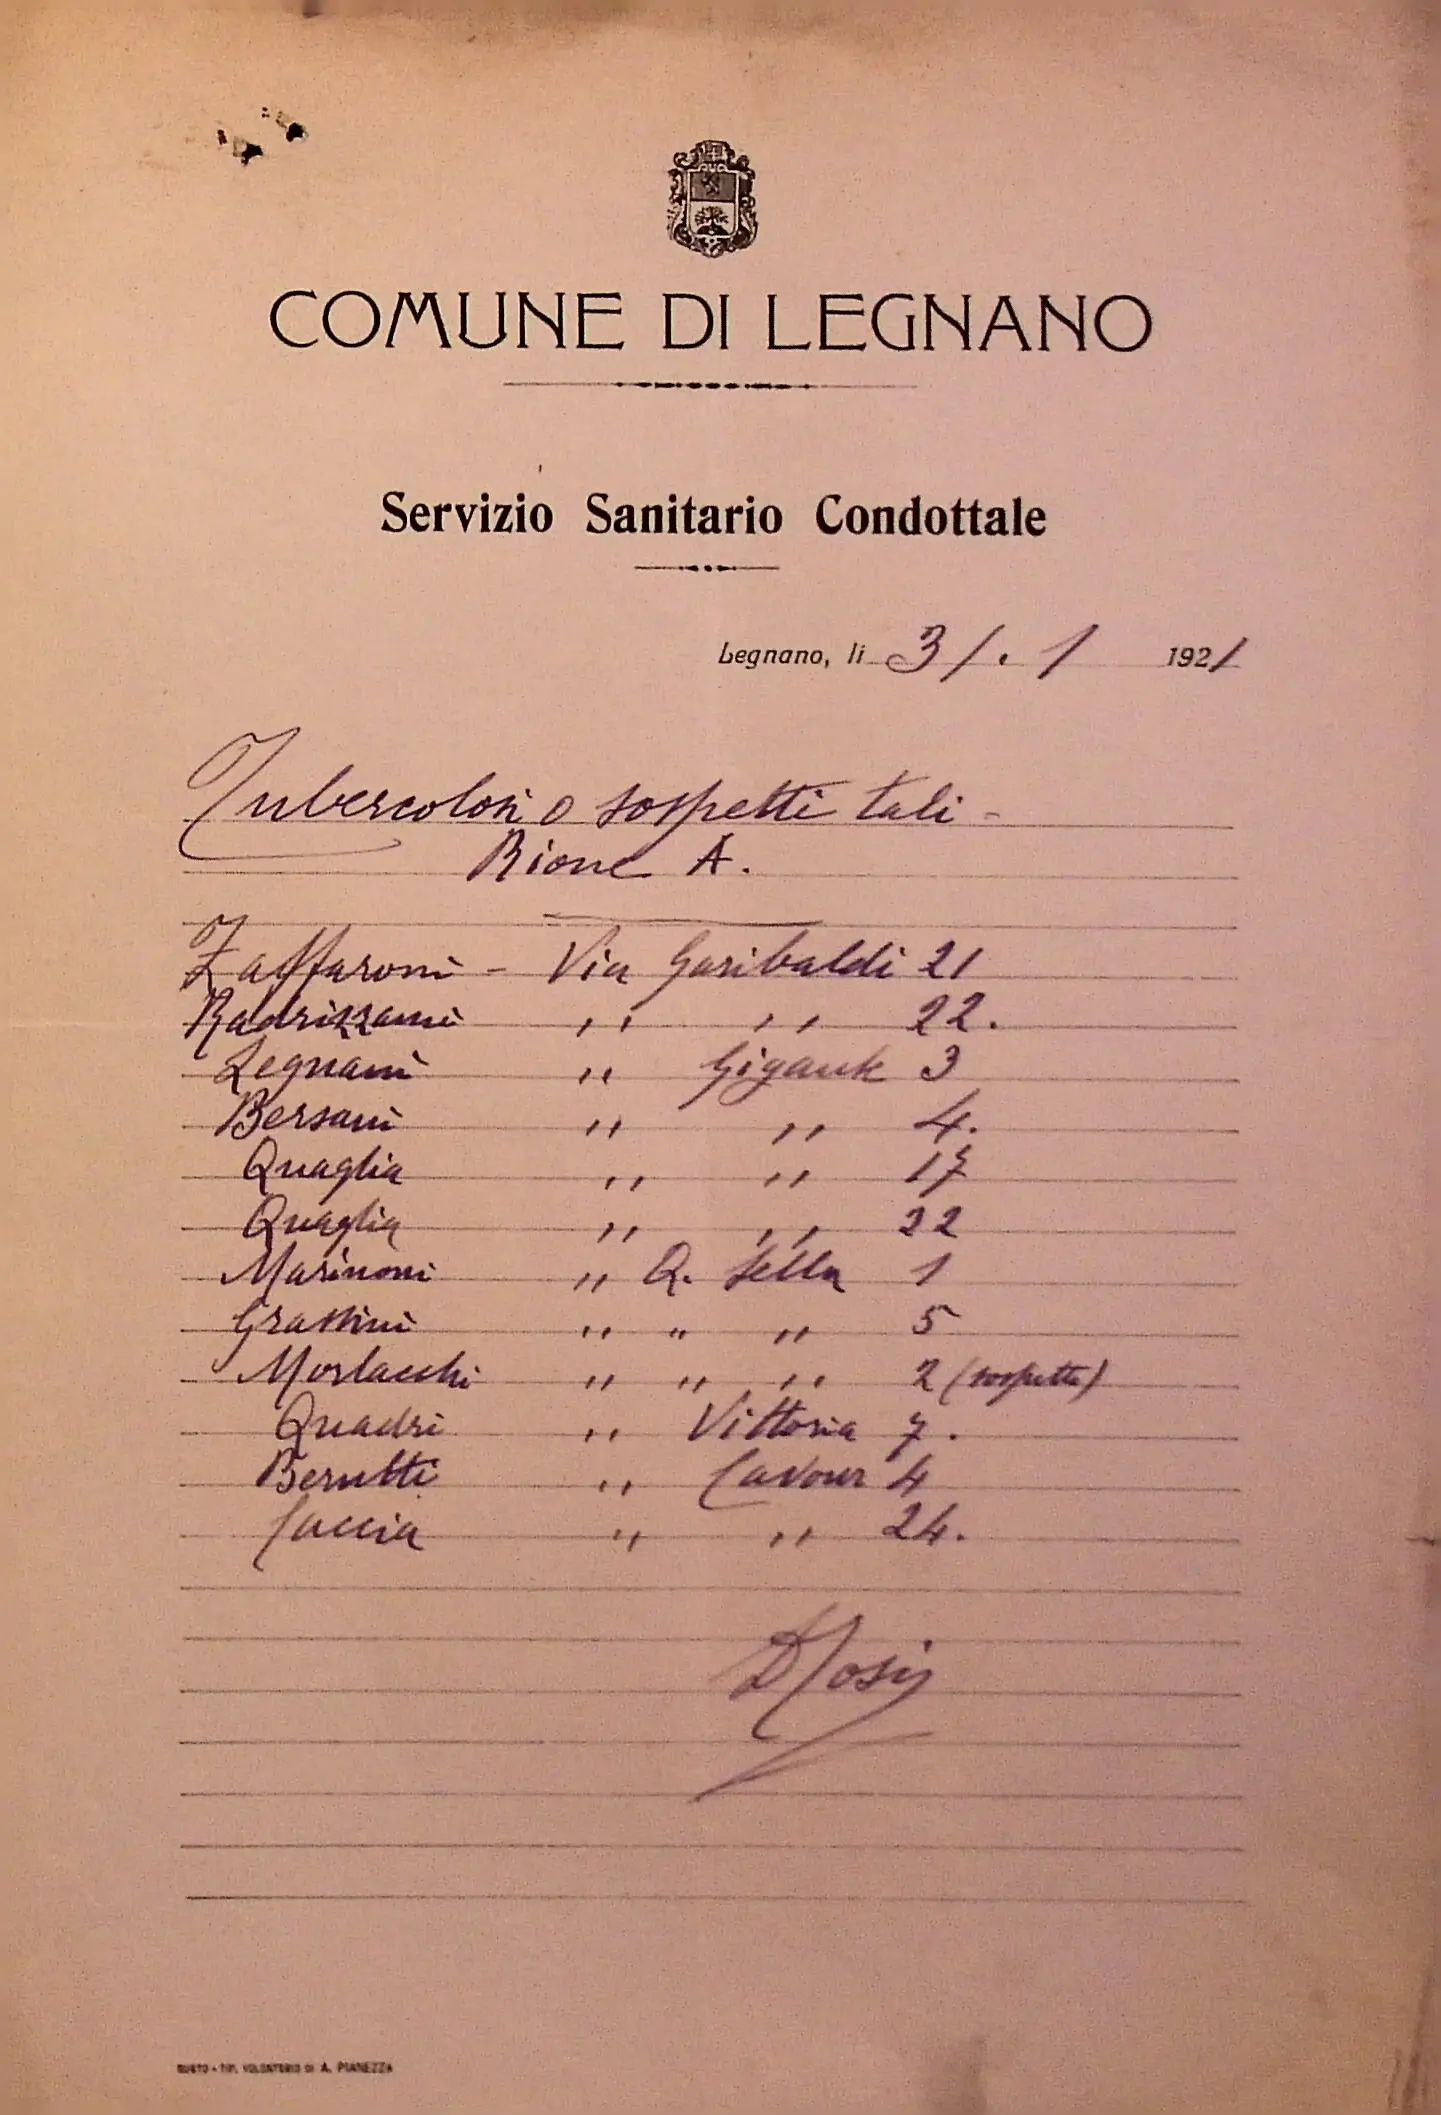 COMUNE DI LEGNANO
Servizio Sanitario Condottale
Legnano, li 31.1 1921
Tubercolosi o sospetti tali -
Rione A.
Zaffaroni - Via Garibaldi 21
Radrizzani " " 22.
Legnani " Gigante 3
Bersani " " 4.
Quaglia " " 17
Quaglia " " 22
Marinoni " Q. Sella 1
Grassini " " " 5
Morlacchi " " " 2 (sospetto)
Quadri " Vittoria 7.
Berutti " Cavour 4
Caccia " " 24.
BUSTO - TIP. VOLONTERIO DI A. PIANEZZA